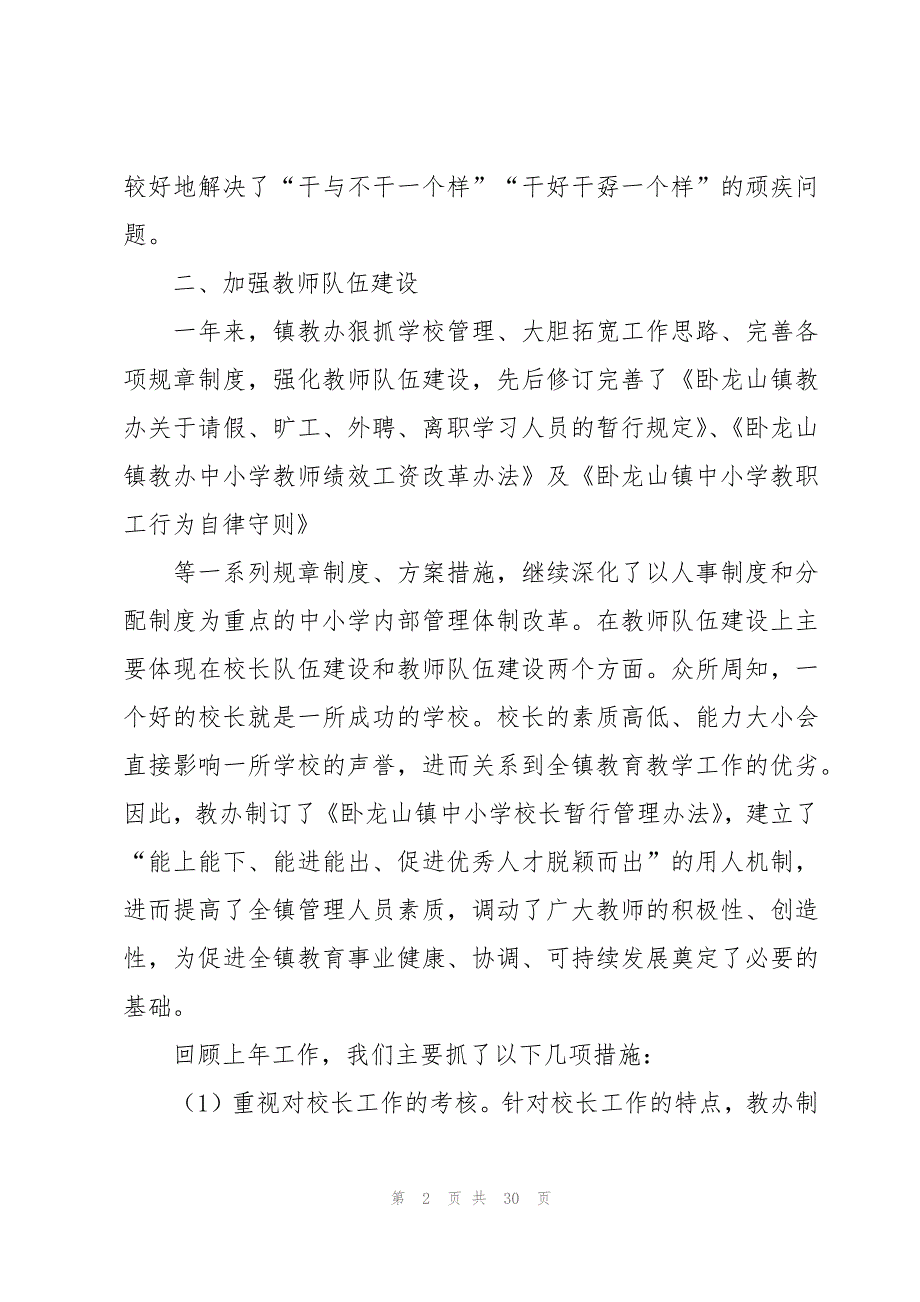 较好地解决了“干与不干一个样”“干好干孬一个样”的顽疾问
题。
二、加强教师队伍建设
一年来，镇教办狠抓学校管理、大胆拓宽工作思路、完善各
项规章制度，强化教师队伍建设，先后修订完善了《卧龙山镇教
办关于请假、旷工、外聘、离职学习人员的暂行规定》、《卧龙山
镇教办中小学教师绩效工资改革办法》及《卧龙山镇中小学教职
工行为自律守则》
等一系列规章制度、方案措施，继续深化了以人事制度和分
配制度为重点的中小学内部管理体制改革。在教师队伍建设上主
要体现在校长队伍建设和教师队伍建设两个方面。众所周知，一
个好的校长就是一所成功的学校。校长的素质高低、能力大小会
直接影响一所学校的声誉，进而关系到全镇教育教学工作的优劣。
因此，教办制订了《卧龙山镇中小学校长暂行管理办法》，建立了
“能上能下、能进能出、促进优秀人才脱颖而出”的用人机制，
进而提高了全镇管理人员素质，调动了广大教师的积极性、创造
性，为促进全镇教育事业健康、协调、可持续发展奠定了必要的
基础。
回顾上年工作，我们主要抓了以下几项措施：
（1）重视对校长工作的考核。针对校长工作的特点，教办制
第 2 页 共 30 页